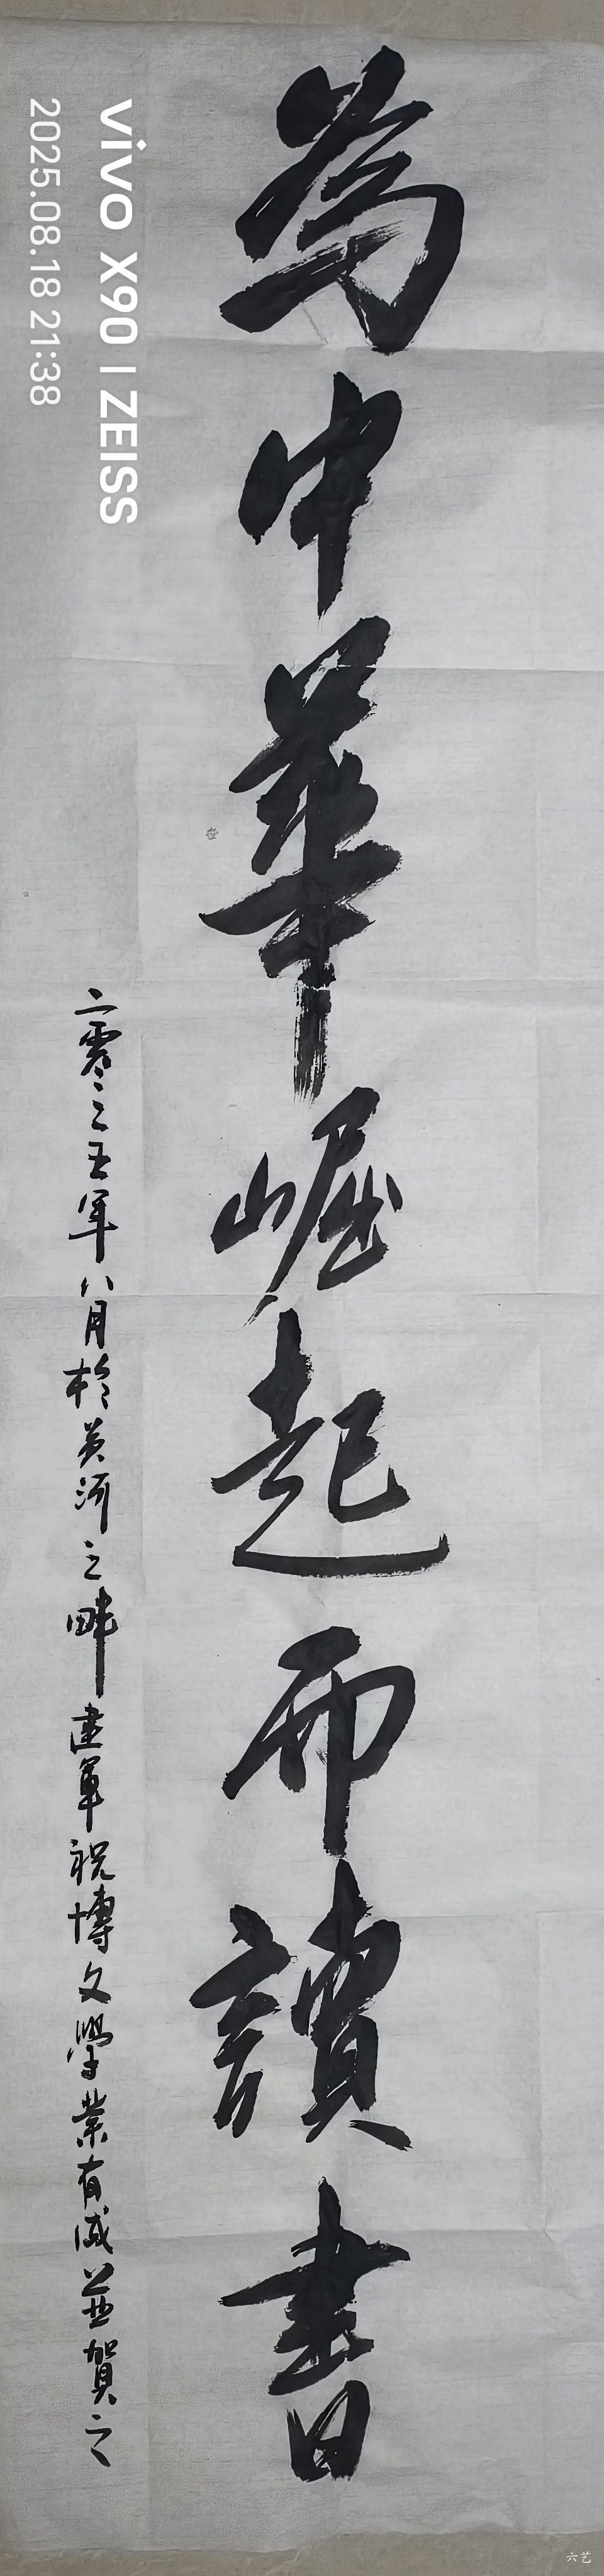 為中華崛起而讀書
二零二五年八月於黃河之畔建軍祝博文學業有成並賀之
vivo X90 | ZEISS
2025.08.18 21:38
六艺